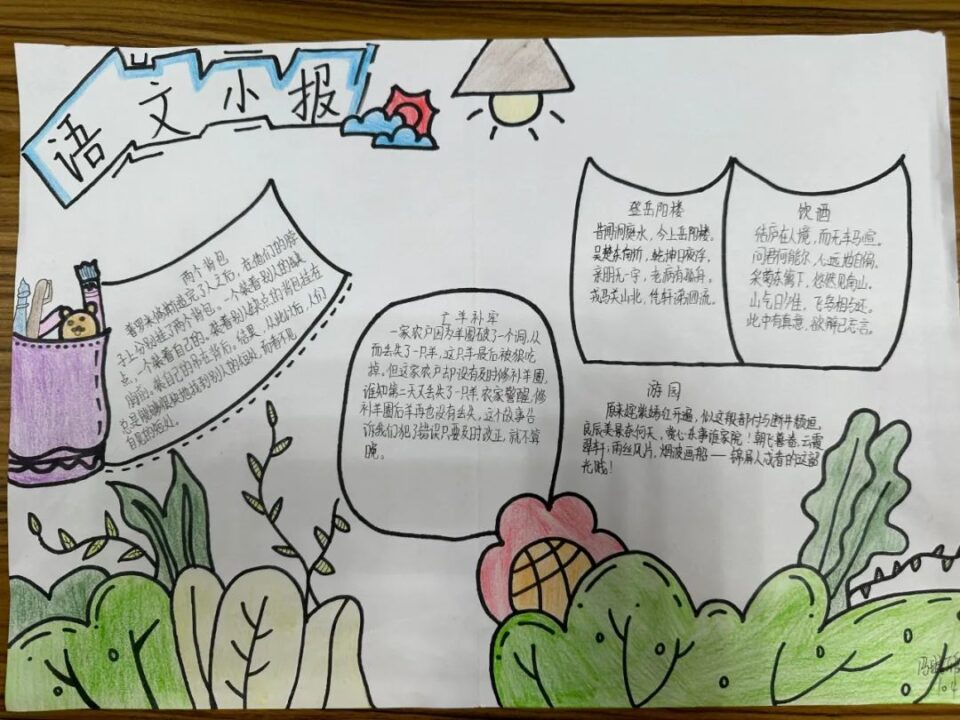 语文小报
两个背包
普罗米修斯造完了人之后，在他们的脖
子上分别挂了两个背包。一个装着别人的缺
点，一个装着自己的。装着别人缺点的背包挂在
胸前，装自己的吊在背后。结果，从此以后，人们
总是能够很快地找到别人的短处，而看不见
自己的短处。
亡羊补牢
一家农户因为羊圈破了一个洞，从
而丢失了一只羊，这只羊最后被狼吃
掉。但这家农户却没有及时修补羊圈，
谁知第二天又丢失了一只羊.农家警醒，修
补羊圈后羊再也没有丢失，这个故事告
诉我们犯了错误只要及时改正，就不算
晚。
登岳阳楼
昔闻洞庭水，今上岳阳楼。
吴楚东南坼，乾坤日夜浮。
亲朋无一字，老病有孤舟。
戎马关山北，凭轩涕泗流。
饮酒
结庐在人境，而无车马喧。
问君何能尔，心远地自偏。
采菊东篱下，悠然见南山。
山气日夕佳，飞鸟相与还。
此中有真意，欲辨已忘言。
游园
原来姹紫嫣红开遍，似这般都付与断井颓垣。
良辰美景奈何天，赏心乐事谁家院！朝飞暮卷，云霞
翠轩；雨丝风片，烟波画船——锦屏人忒看的这韶
光贱！